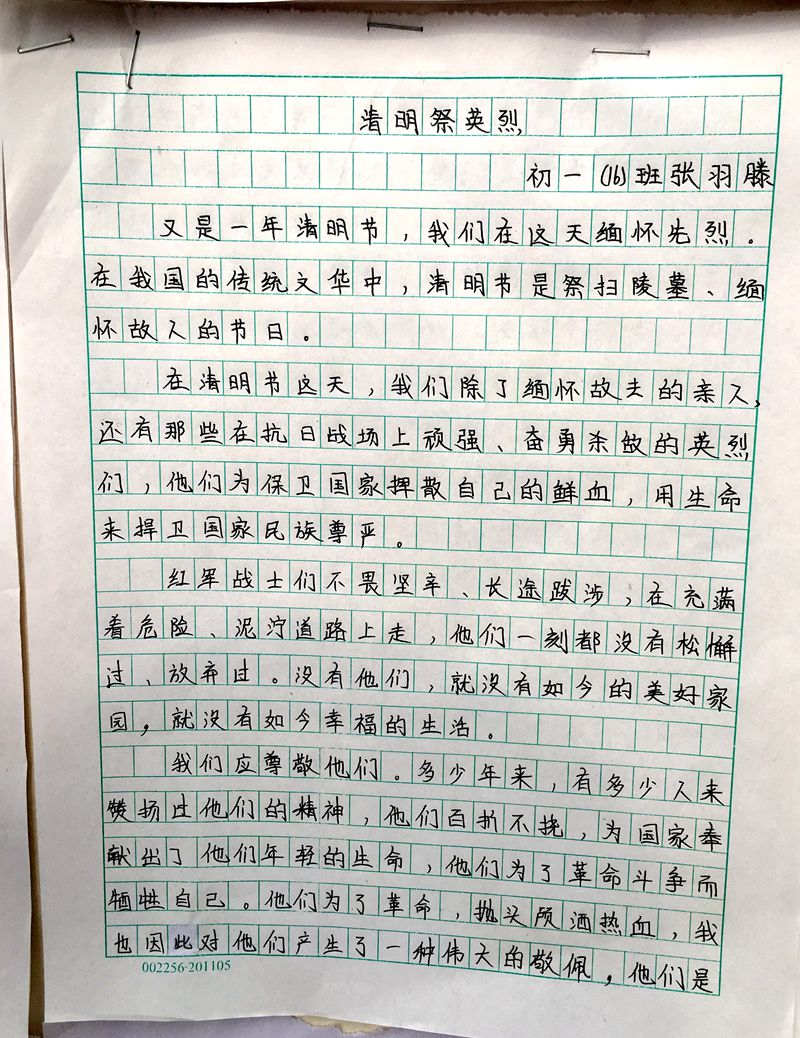 清明祭英烈
初一(16)班张羽滕
又是一年清明节，我们在这天缅怀先烈。
在我国的传统文华中，清明节是祭扫陵墓、缅
怀故人的节日。
在清明节这天，我们除了缅怀故去的亲人，
还有那些在抗日战场上顽强、奋勇杀敌的英烈
们，他们为保卫国家挥散自己的鲜血，用生命
来捍卫国家民族尊严。
红军战士们不畏坚辛、长途跋涉，在充满
着危险、泥泞道路上走，他们一刻都没有松懈
过、放弃过。没有他们，就没有如今的美好家
园，就没有如今幸福的生活。
我们应尊敬他们。多少年来，有多少人来
赞扬过他们的精神，他们百折不挠，为国家奉
献出了他们年轻的生命，他们为了革命斗争而
牺牲自己。他们为了革命，抛头颅洒热血，我
也因此对他们产生了一种伟大的敬佩，他们是
002256·201105